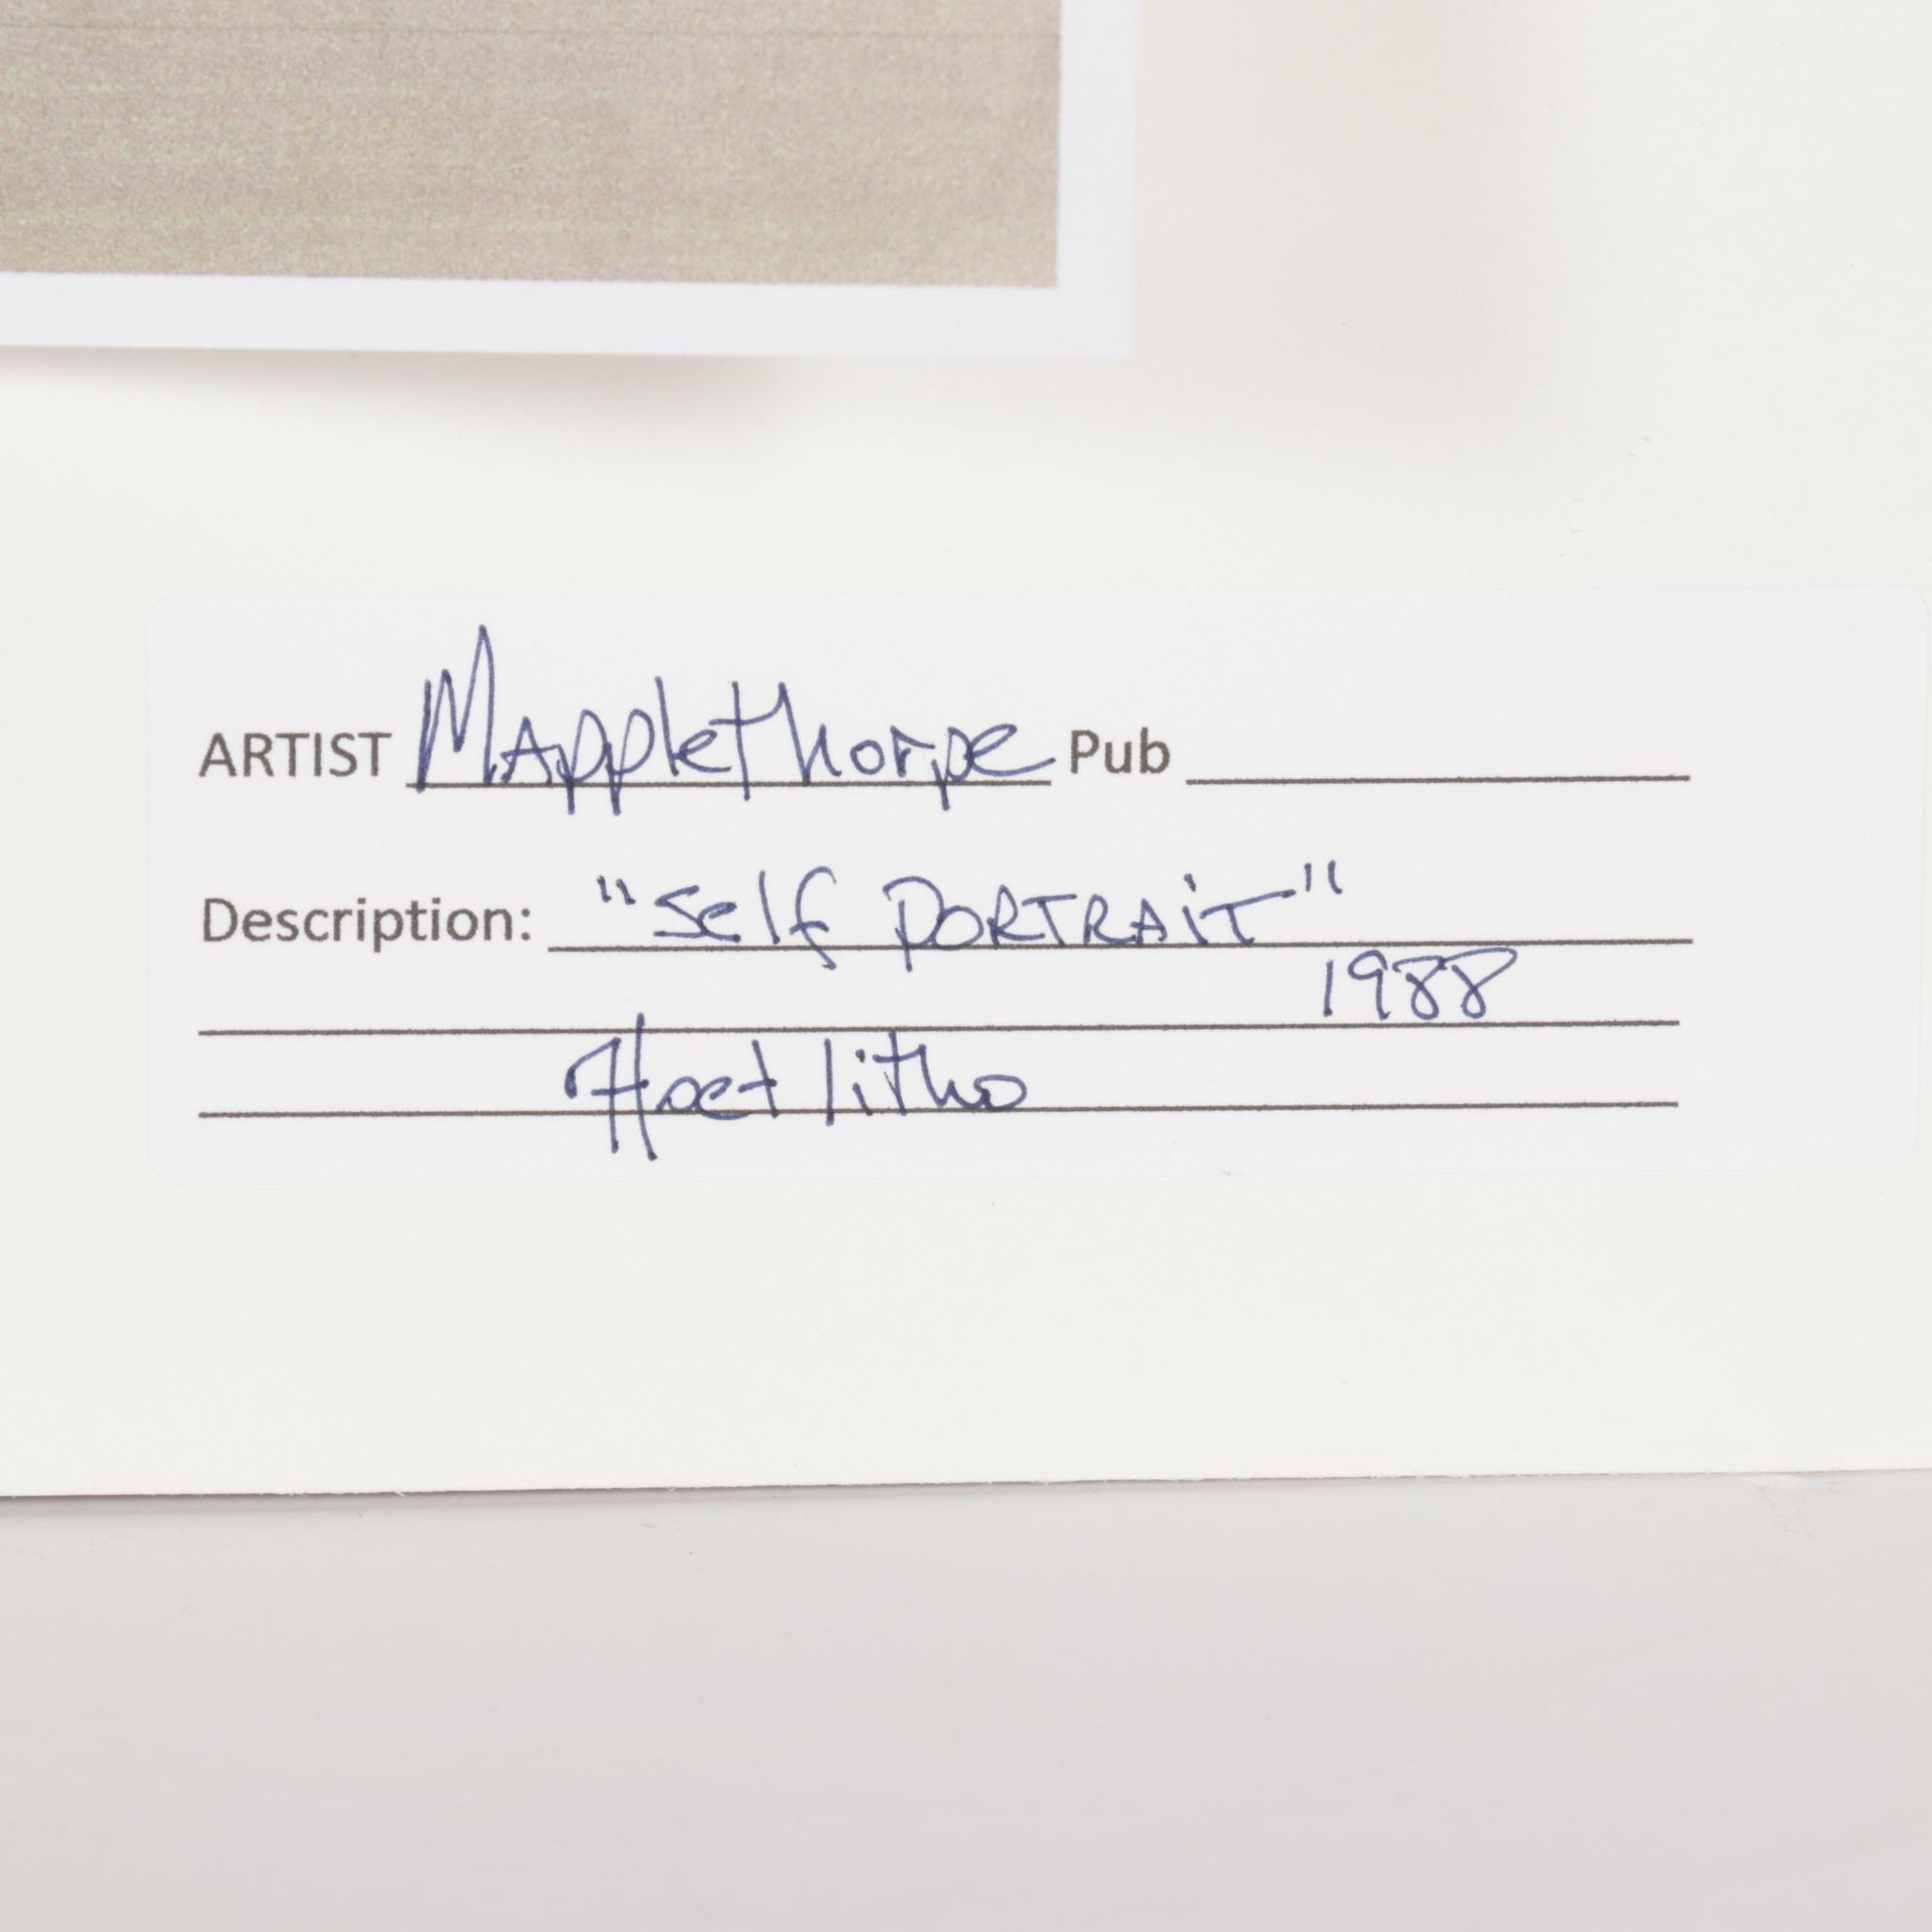 ARTIST Mapplethorpe Pub
Description: "Self PORTRAiT"
1988
litho